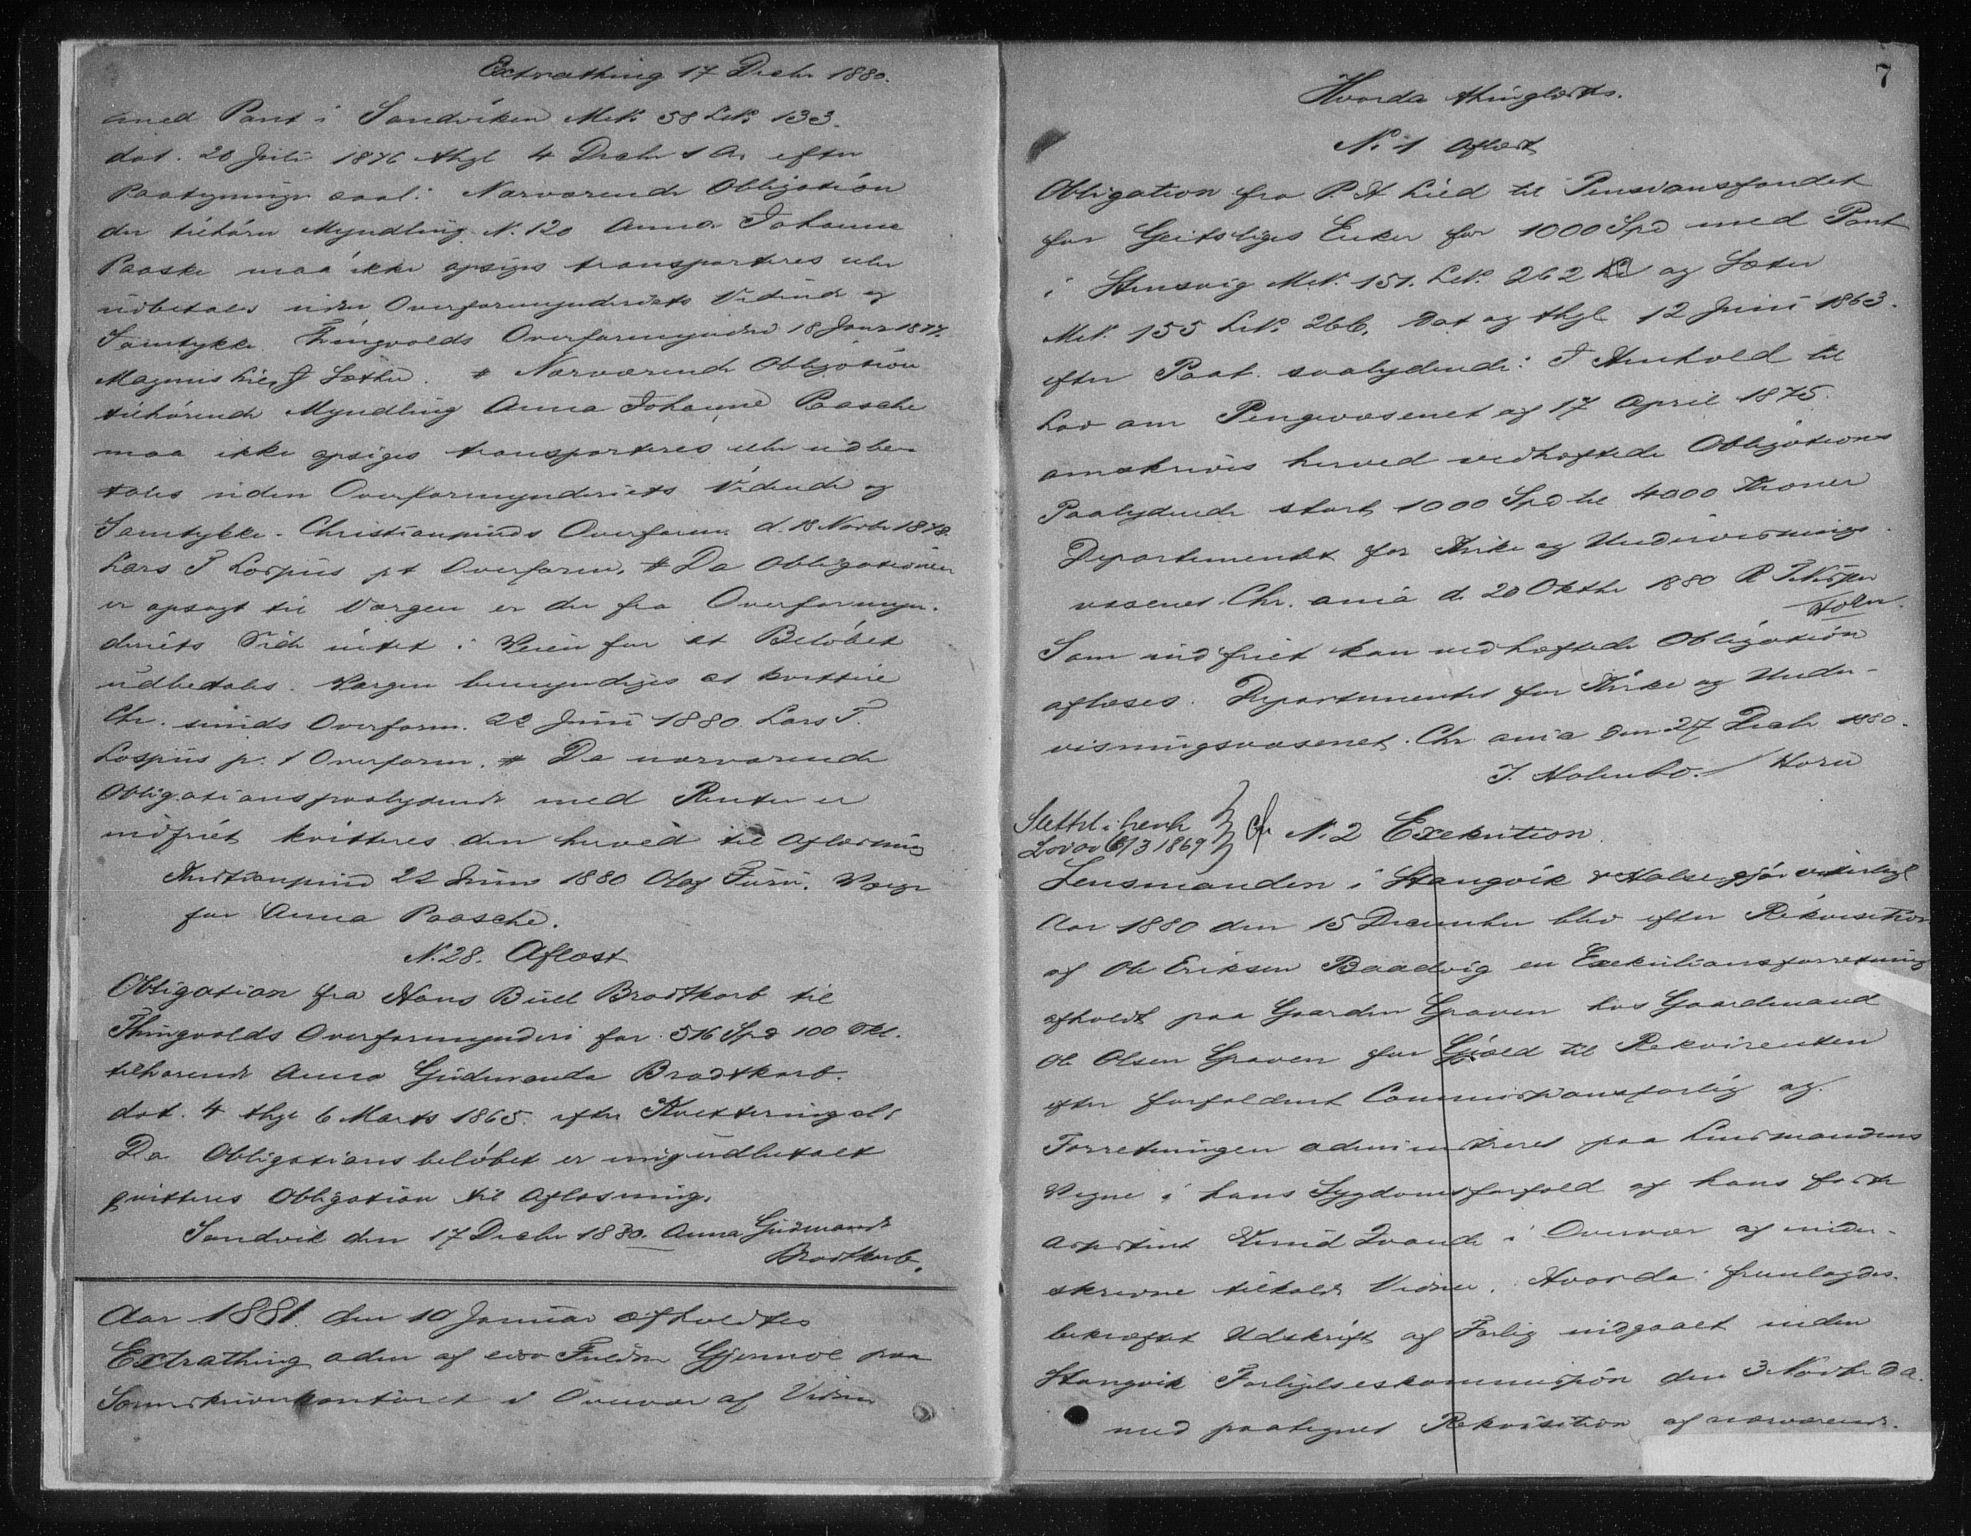 Extrathing 17 Decbr 1880.
med Pant i Sandviken Mt.N. 58 L.N. 133.
dat. 20 Juli 1876 thgl 4 Decbr s A. efter
Paategninger saal: Nærværende Obligation
der tilhører Myndling N. 120 Anna Johanne
Paaske maa ikke opsiges transporteres eller
udbetales uden Overformynderiets Vidende og
Samtykke Thingvolds Overformynderi 18 Janr 1877.
Magnus Lie, J Sæther. # Nærværende Obligation
tilhørende Myndling Anna Johanne Paasche
maa ikke opsiges transporteres eller udbe-
tales uden Overformynderiets Vidende og
Samtykke. Christiansunds Overform. d. 18 Novbr 1878.
Lars T Lossius pt Overform. # Da Obligationen
er opsagt til Værgen er der fra Overformyn-
deriets Side intet i Veien for at Beløbet
udbetales. Værgen bemyndiges at kvittere
Chr. sunds Overform. 22 Juni 1880. Lars T.
Lossius p. t Overform. # Da nærværende
Obligations paalydende med Renter er
indfriet kvitteres den herved til Aflæsning
Kristiansund 22 Juni 1880 Olaf Furu. Værge
for Anna Paasche.
N. 28. Aflæst
Obligation fra Hans Bull Brodtkorb til
Thingvolds Overformynderi for 516 Spd 100 Skl.
tilhørende Anna Gudmanda Brodtkorb.
dat. 4 thgl 6 Marts 1865. efter Kvittering al:
Da Obligationsbeløbet er mig udbetalt
qvitteres Obligation til Aflæsning.
Sandvik den 17 Decbr 1880. Anna Gudmanda
Brodtkorb.
Aar 1881. den 10 Januar afholdtes
Extrathing aden af Fuldm Gjermoe paa
Sorenskriverkontoret i Overvær af Vidner
7
Hvorda thinglæstes.
N. 1 Aflæst
Obligation fra P. A Lied til Pensionsfondet
for Geistliges Enker for 1000 Spd med Pant
i Stensvig Mt.N. 151. L.N. 262 og Sæter
Mt.N. 155 L.N. 266. Dat og thgl 12 Juni 1863.
efter Paat. saalydende: I Henhold til
Lov om Pengevæsenet af 17 April 1875.
omskrives herved vedhæftede Obligations
Paalydende stort 1000 Spd til 4000 Kroner
Departementet for Kirke og Undervisnings-
væsenet Chr. ania d. 20 Oktbr 1880
Som indfriet kan vedhæftede Obligation
aflæses. Departementet for Kirke og Under-
visningsvæsenet. Chr ania den 27 Decbr 1880.
J. Holmbo. / Horn
Slettet i henh
Lov av 6/3 1869
N. 2 Exekution.
Lensmanden i Stangvik & Halse gjør vitterligt
Aar 1880 den 15 December blev efter Rekvisition
af Ole Eriksen Baadvig en Exekutionsforretning
afholdt paa Gaarden Graven hos Gaardmand
Ole Olsen Graven for Gjæld til Rekvirenten
efter forfaldent Commissionsforlig og.
Forretningen administreret paa Lensmandens
Vegne i hans Sygdomsforfald af hans faste
Assistent Knud Kvande i Overvær af under-
skrevne tilkaldte Vidner. Hvorda fremlagdes
bekræftet Udskrift af Forlig indgaaet inden
Stangvik Forligelseskommission den 3 Novbr d A.
med paategnet Rekvisition af nærværende